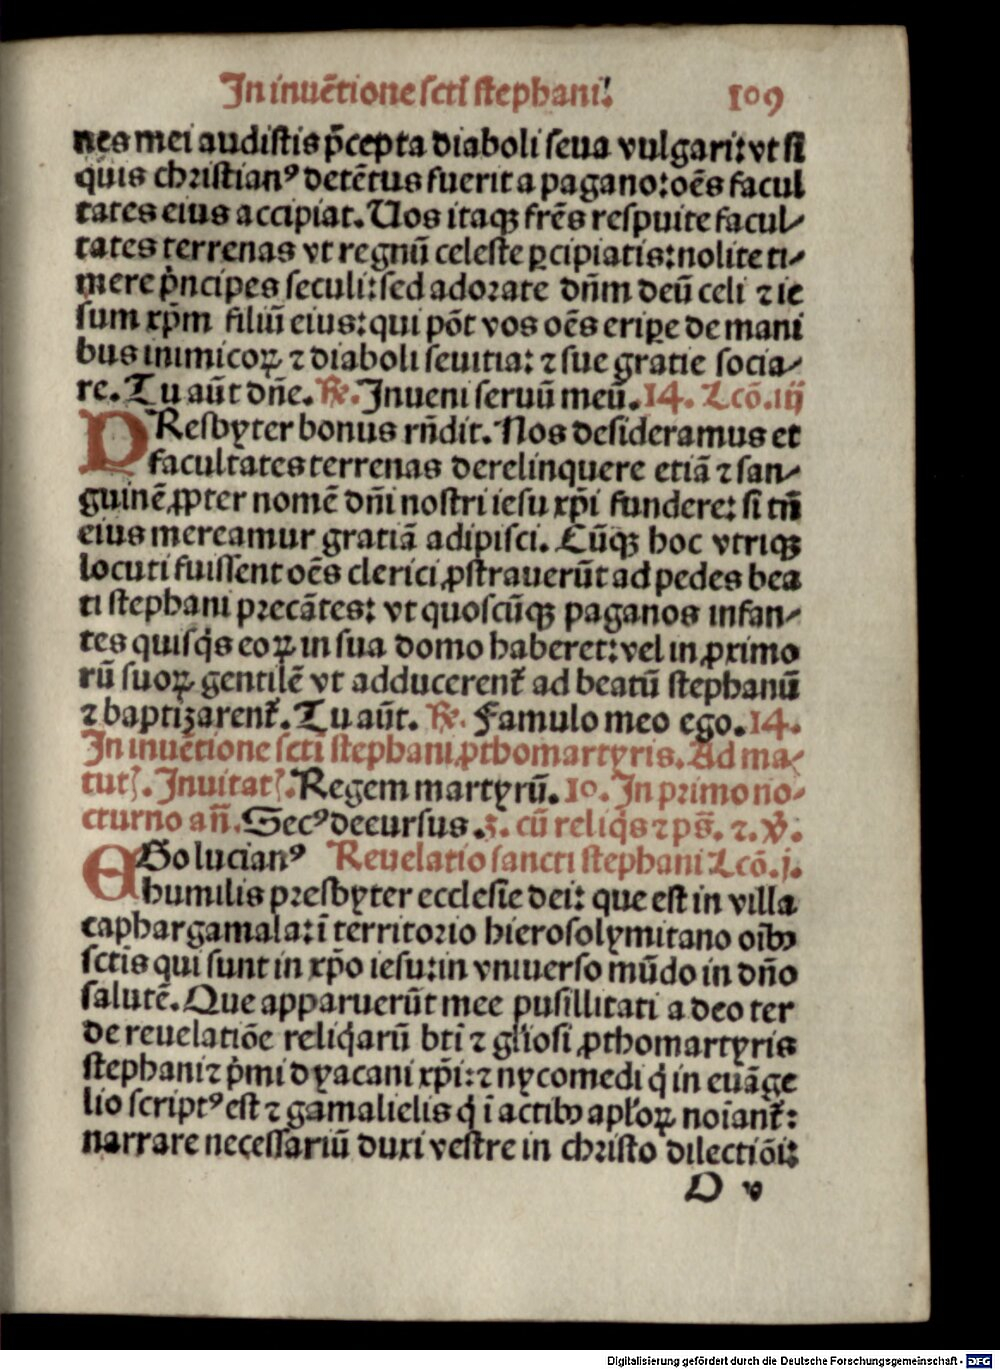 In inuētione scti stephani. 109
nes mei audistis p̄cepta diaboli seua vulgari: vt si
quis christianꝰ detētus fuerit a pagano: oēs facul
tates eius accipiat. Uos itaqꝫ frēs respuite facul⸗
tates terrenas vt regnū celeste ꝑcipiatis: nolite ti⸗
mere p̍ncipes seculi: sed adorate dn̄m deū celi ⁊ ie
sum xp̄m filiū eius: qui pōt vos oēs eripe de mani
bus inimicoꝝ ⁊ diaboli seuitia: ⁊ sue gratie socia⸗
re. Tu aūt dn̄e. ℟. Inueni seruū meū. 14. Lcō. iij
PResbyter bonus rn̄dit. Nos desideramus et
facultates terrenas derelinquere etiā ⁊ san⸗
guinē ꝓpter nomē dn̄i nostri iesu xp̄i fundere: si tn̄
eius mereamur gratiā adipisci. Cūqꝫ hoc vtriqꝫ
locuti fuissent oēs clerici ꝓstrauerūt ad pedes bea
ti stephani precātes: vt quoscūqꝫ paganos infan⸗
tes quisq̍s eoꝝ in sua domo haberet: vel in ꝓximo
rū suoꝝ gentilē vt adducerent᷑ ad beatū stephanū
⁊ baptizarent᷑. Tu aūt. ℟. Famulo meo ego. 14.
In inuētione scti stephani ꝓthomartyris. Ad ma⸗
tut᷑. Inuitat᷑. Regem martyrū. 10. In primo no⸗
cturno an̄. Secꝰ decursus. 3. cū reliq̍s ⁊ ps̄. ⁊. ℣.
EGo lucianꝰ Reuelatio sancti stephani Lcō. j.
humilis presbyter ecclesie dei: que est in villa
caphargamala: ī territorio hierosolymitano oībꝰ
sctīs qui sunt in xp̄o iesu: in vniuerso mūdo in dn̄o
salutē. Que apparuerūt mee pusillitati a deo ter
de reuelatiōe reliq̍arū btī ⁊ gl̄iosi ꝓthomartyris
stephani ⁊ p̍mi dyacani xp̄i: ⁊ nycomedi q̍ in euāge
lio scriptꝰ est ⁊ gamalielis q̍ ī actibꝰ apl̄oꝝ noīant᷑:
narrare necessariū duxi vestre in christo dilectiōi:
D v
Digitalisierung gefördert durch die Deutsche Forschungsgemeinschaft - DFG